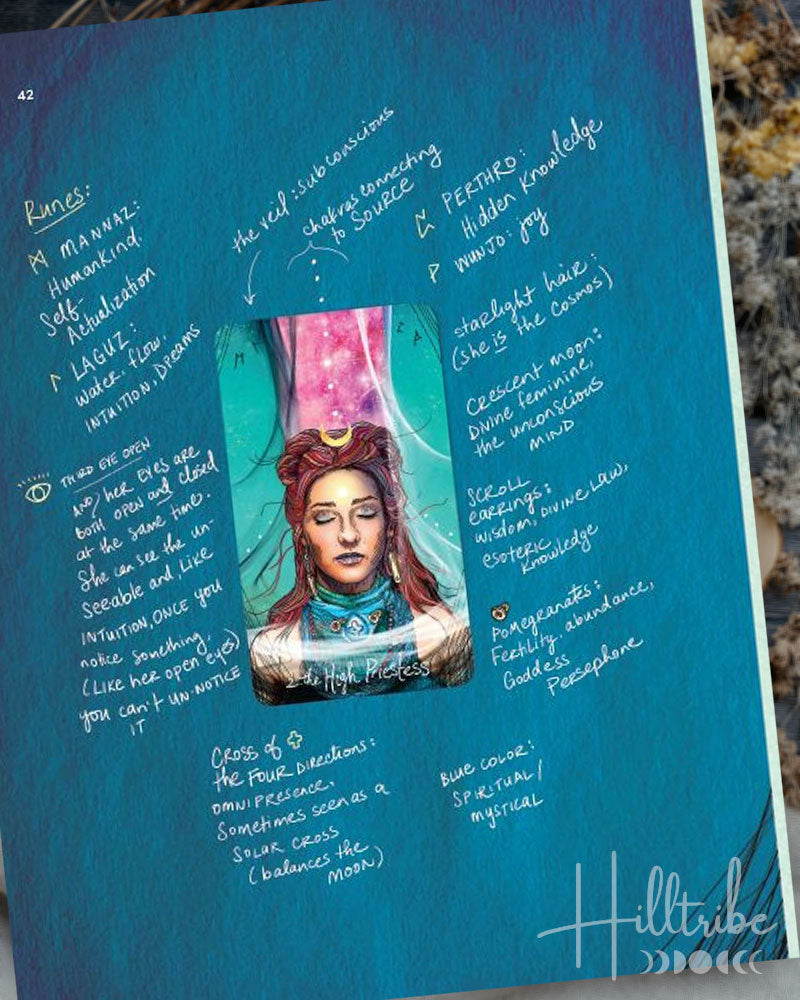 42
Runes:
MANNAZ:
Humankind,
Self-
Actualization
LAGUZ:
Water, flow,
INTUITION, Dreams
the veil: subconscious
chakras connecting
to SOURCE
PERTHRO:
Hidden Knowledge
WUNJO: joy
starlight hair:
(she is the cosmos)
Crescent moon:
Divine feminine,
the unconscious
MIND
SCROLL
earrings:
wisdom, DIVINE LAW,
esoteric
Knowledge
Pomegranates:
Fertility, abundance,
Goddess
Persephone
THIRD EYE OPEN
AND/ her EYES are
both open and closed
at the same time.
She can see the un-
Seeable and, like
INTUITION, ONCE you
notice something,
(Like her open eyes)
you can't UN-NOTICE
IT
2-the High Priestess
CROSS of
the FOUR DIRECTIONS:
OMNIPRESENCE,
Sometimes seen as a
SOLAR CROSS
(balances the
MOON)
BLUE COLOR:
SPIRITUAL/
mystical
Hilltribe